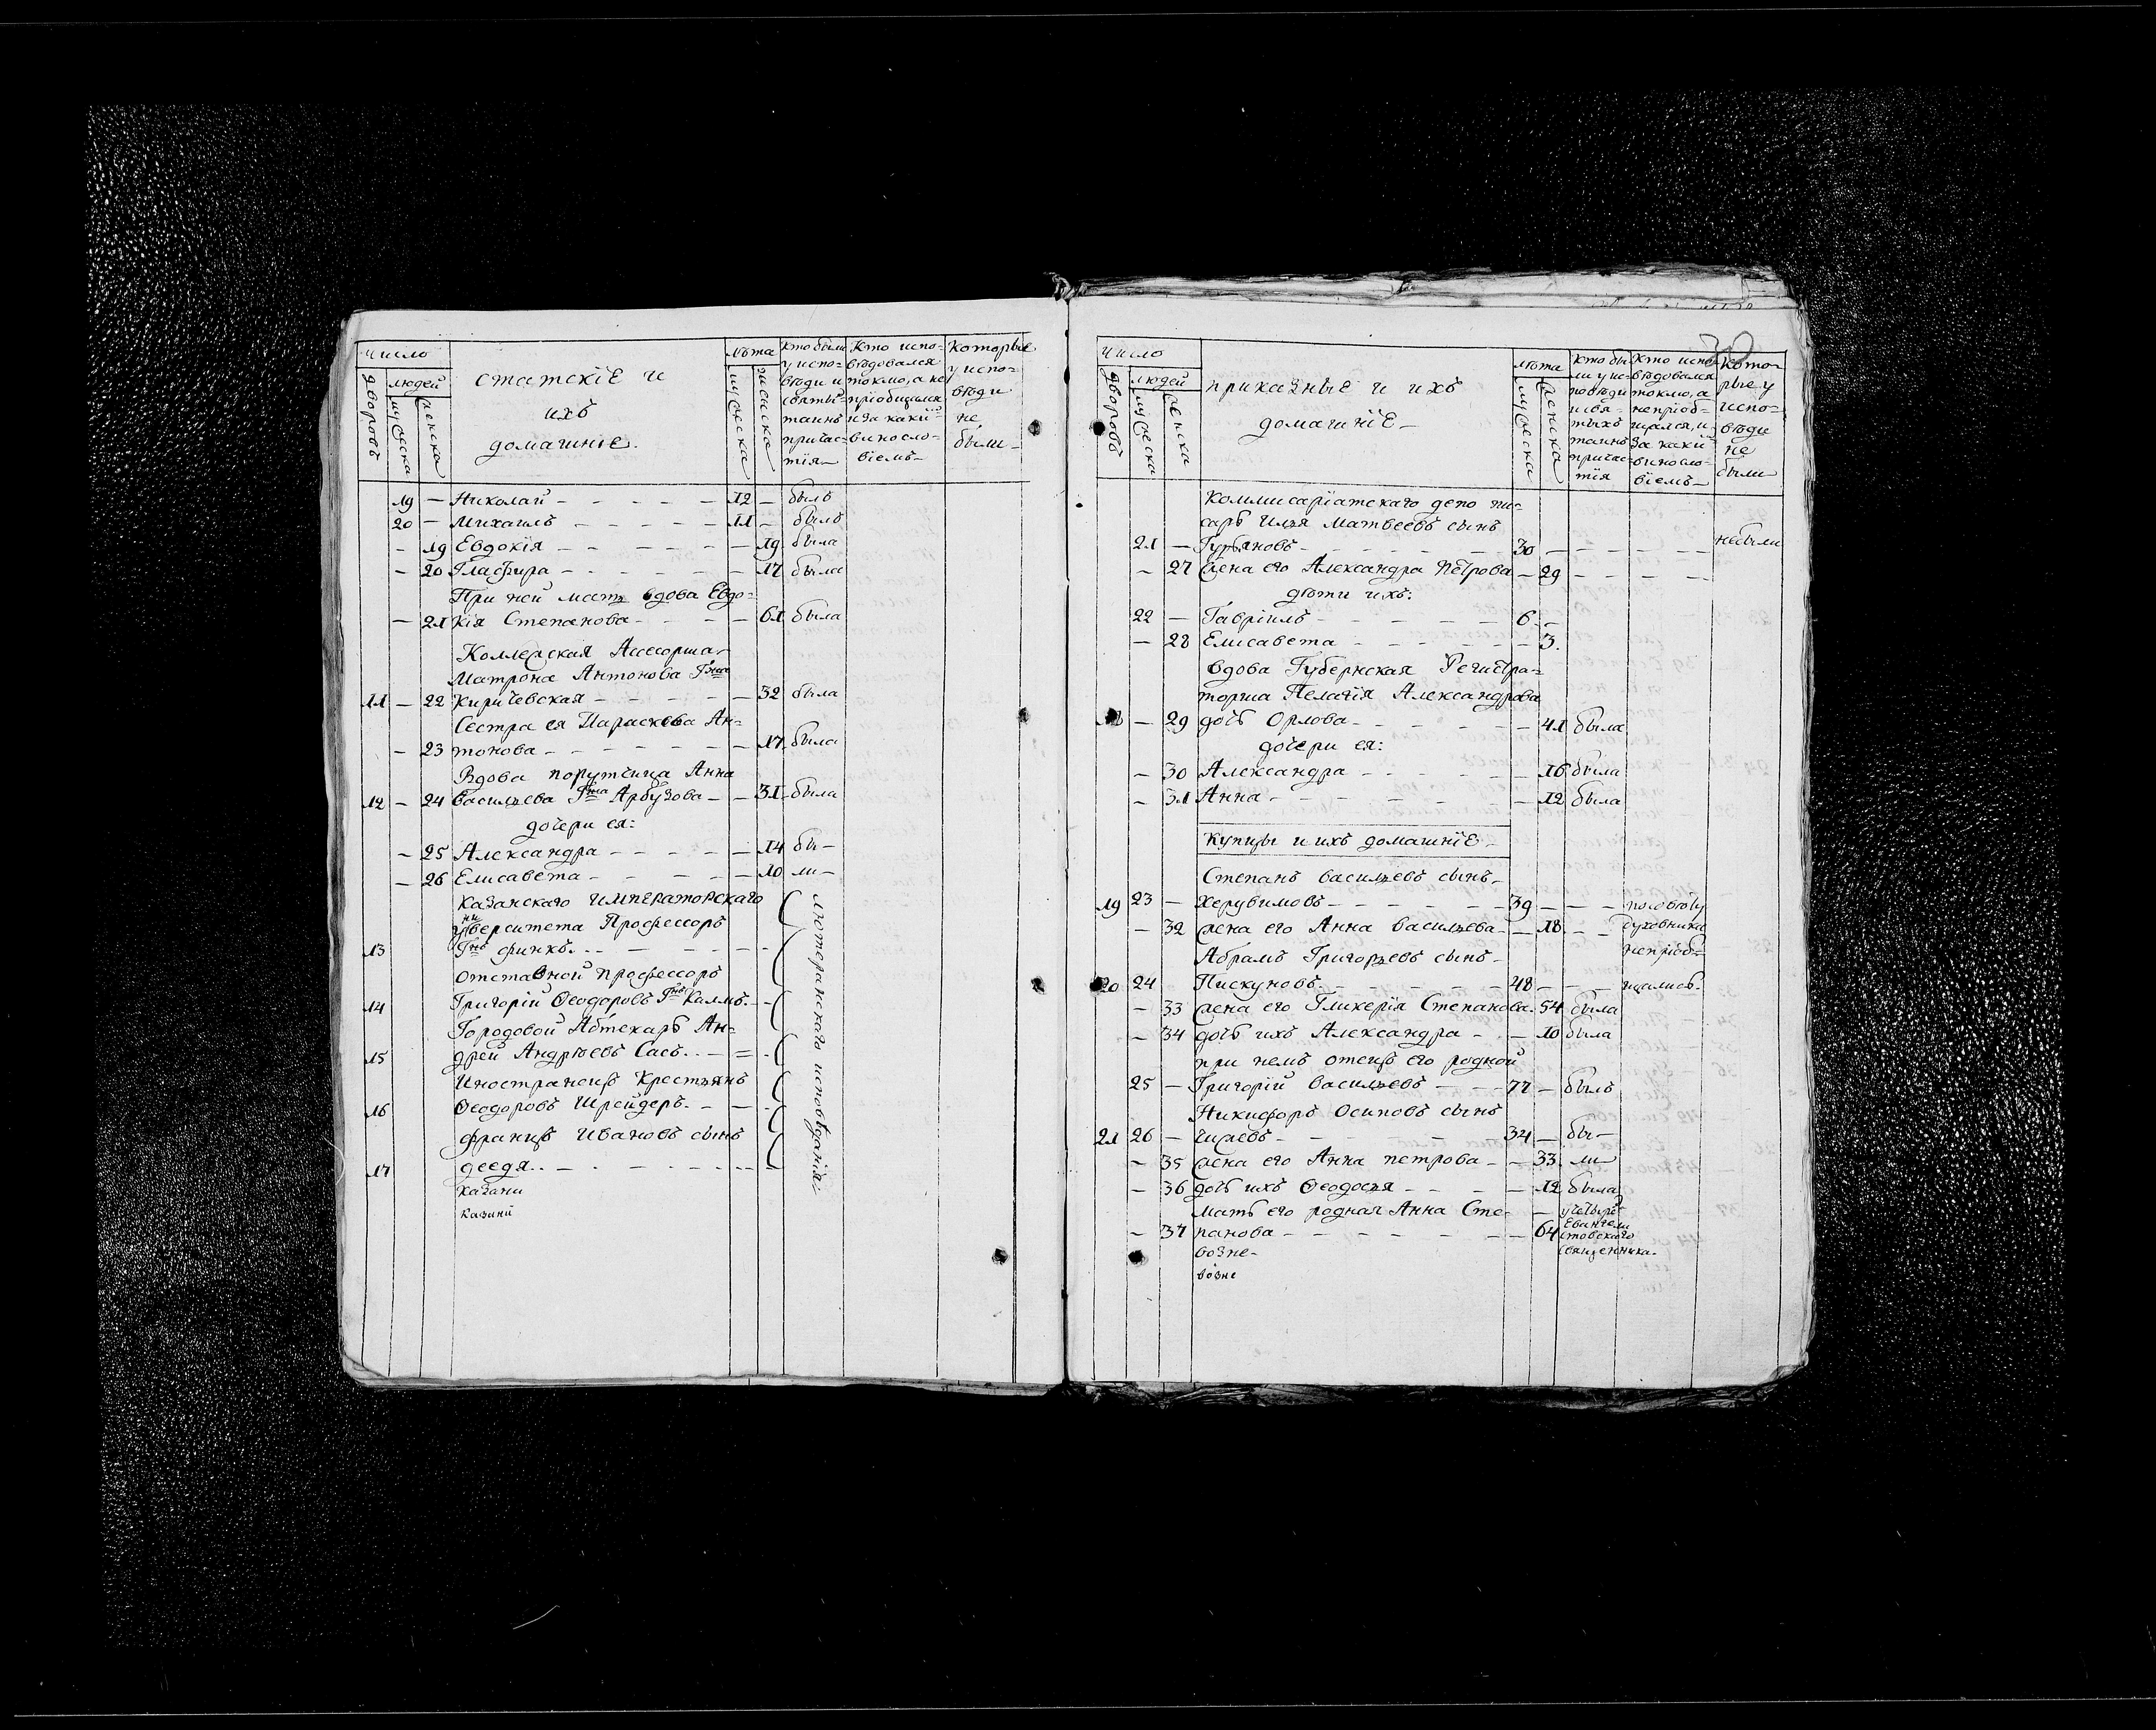 Число
людей
дворовъ
мужеска
женска
статскіе и
ихъ
домашніе.
лѣта
мужеска
женска
Кто были
у испо-
вѣди и
святы-
таинъ
причас-
тія
Кто испо-
вѣдовался
токмо, а не
пріобщился
и за каки
виносло-
віемъ
Которые
у испо-
вѣди
не
были
19 — Николай — 12 — былъ
20 — Михаилъ — 11 — былъ
— 19 Евдокія — 19 была
— 20 Глафира — 17 была
При ней мать вдова Евдо-
— 21 кія Степанова — 61 была
Коллежская Ассесорша
Матрона Антонова Гжа
11 — 22 Киричевская — 32 была
Сестра ея Параскева Ан-
— 23 тонова — 17 была
Вдова порутчица Анна
12 — 24 Васильева Гжа Арбузова — 31 была
дочери ея:
— 25 Александра — 14 бы-
— 26 Елисавета — 10 ли-
Казанскаго Императорскаго
Университета Профессоръ
13 Гнъ Финкъ.
Отставной Профессоръ
14 Григорій Ѳеодоровъ Гнъ Каллъ.
Городовой Аптекарь Ан-
15 дрей Андрѣевъ Сасъ.
Иностранецъ Крестьянъ
16 Ѳеодоровъ Шрейдеръ.
Францъ Ивановъ сынъ
17 Деедя.
лютеранскаго исповѣданія
Казани
Казани
30
Число
людей
дворовъ
мужеска
женска
приказные и ихъ
домашніе
лѣта
мужеска
женска
Кто бы-
ли у ис-
повѣди
и свя-
тыхъ
таинъ
причас-
тія
Кто испо-
вѣдовался
токмо, а
непріоб-
щался, и
за каки
виносло-
віемъ
Кото-
рые у
испо-
вѣди
не
были
Коммисаріатскаго депо пи-
сарь Илья Матвеевъ сынъ
21 — Гурьяновъ — 30 — небыли
— 27 жена его Александра Петрова — 29
дѣти ихъ:
22 — Гавріилъ — 6
— 28 Елисавета — 3.
Вдова Губернская Регистра-
торша Пелагія Александрова
18 — 29 дочь Орлова — 41 была
дочери ея:
— 30 Александра — 16 была
— 31 Анна — 12 была
Купцы и ихъ домашніе
Степанъ Васильевъ сынъ
19 23 — Херувимовъ — 39 — по совѣту
— 32 жена его Анна Васильева — 18 — духовника
Абрамъ Григорьевъ сынъ — непріоб-
20 24 Пискуновъ. — 48 — щались.
— 33 жена его Гликерія Степанова. 54 была
— 34 дочь ихъ Александра — 10 была
при немъ отецъ его родной
25 — Григорій Васильевъ — 77 — былъ
Никифоръ Осиповъ сынъ
21 26 — Чижевъ — 34 — бы-
— 35 жена его Анна Петрова — 33 ли
— 36 дочь ихъ Ѳеодосья — 12 была
Мать его родная Анна Сте- — у четырё
— 37 панова — 64 Евангели
стовскаго
священника.
возне-
возне